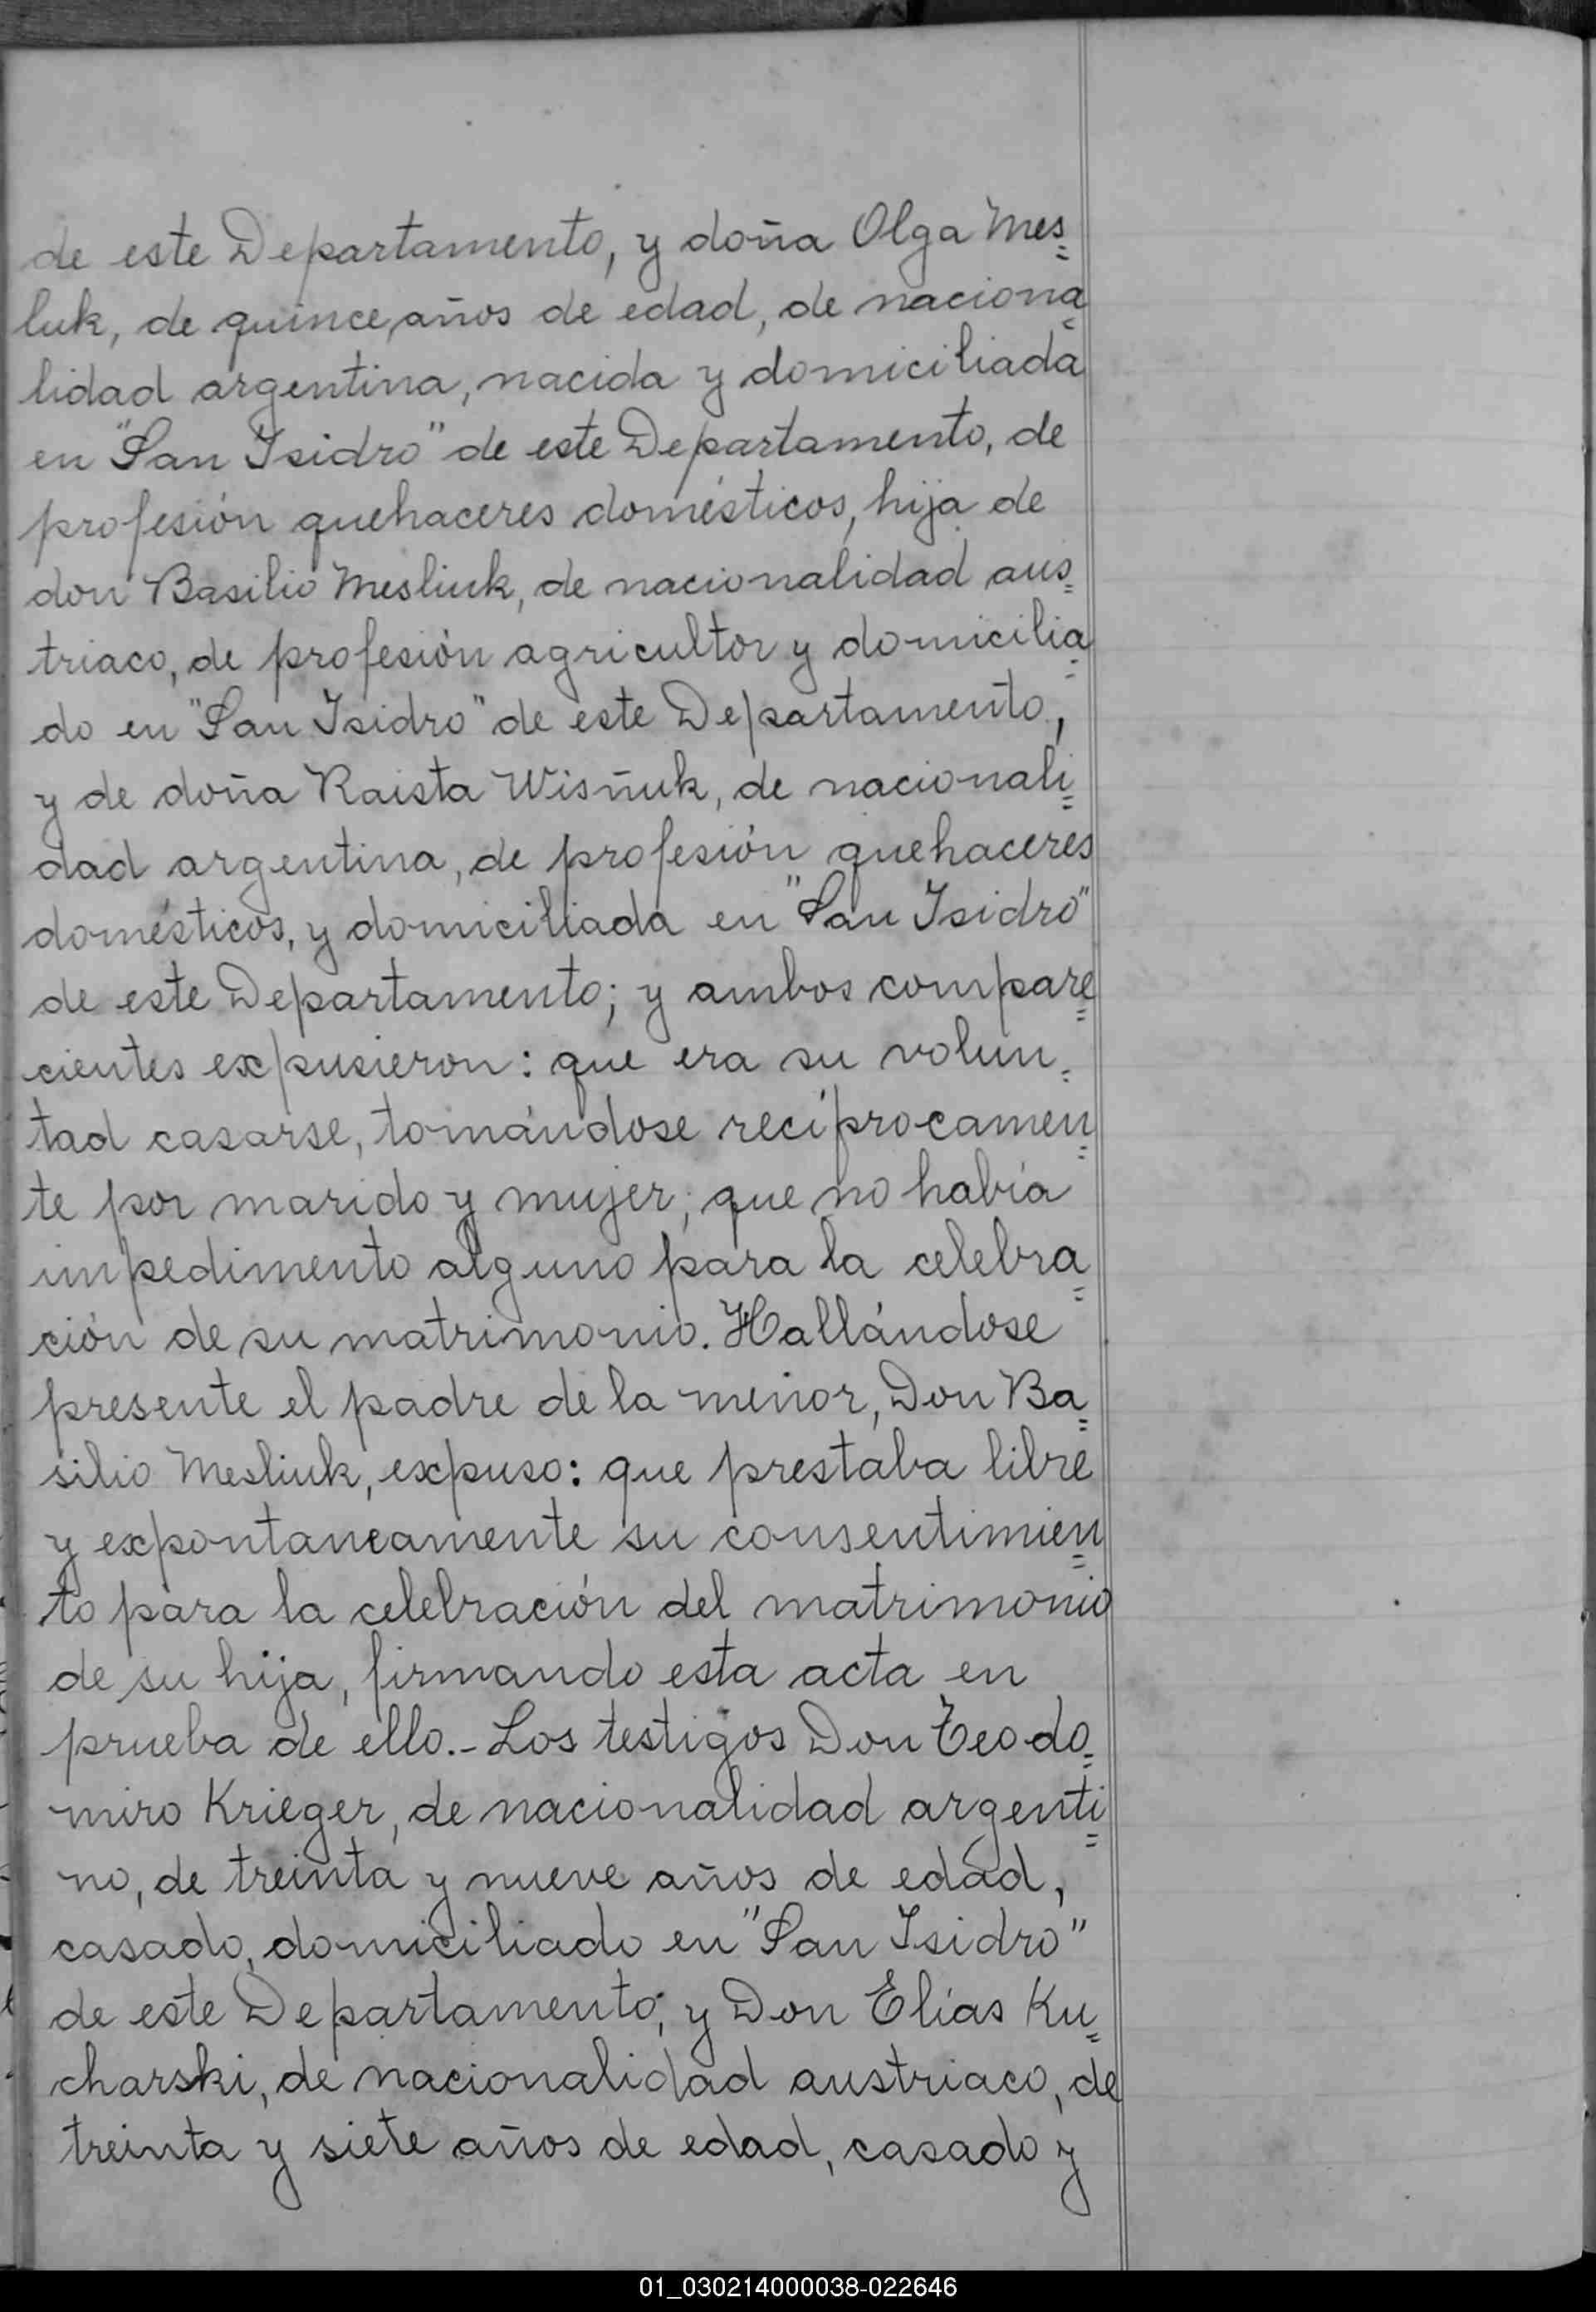 de este Departamento, y doña Olga Mes=
luk, de quince años de edad, de naciona=
lidad argentina, nacida y domiciliada
en "San Isidro" de este Departamento, de
profesión quehaceres domésticos, hija de
don Basilio Mesliuk, de nacionalidad aus=
triaco, de profesión agricultor y domicilia=
do en "San Isidro" de este Departamento,
y de doña Raista Wisñuk, de nacionali=
dad argentina, de profesión quehaceres
domésticos, y domiciliada en "San Isidro"
de este Departamento; y ambos compare=
cientes expusieron: que era su volun=
tad casarse, tomándose recíprocamen=
te por marido y mujer; que no había
impedimento alguno para la celebra=
ción de su matrimonio. Hallándose
presente el padre de la menor, Don Ba=
silio Mesliuk, expuso: que prestaba libre
y expontaneamente su consentimien=
to para la celebración del matrimonio
de su hija, firmando esta acta en
prueba de ello.- Los testigos Don Teodo=
miro Krieger, de nacionalidad argenti=
no, de treinta y nueve años de edad,
casado, domiciliado en "San Isidro"
de este Departamento; y Don Elías Ku=
charski, de nacionalidad austriaco, de
treinta y siete años de edad, casado y
01_030214000038-022646